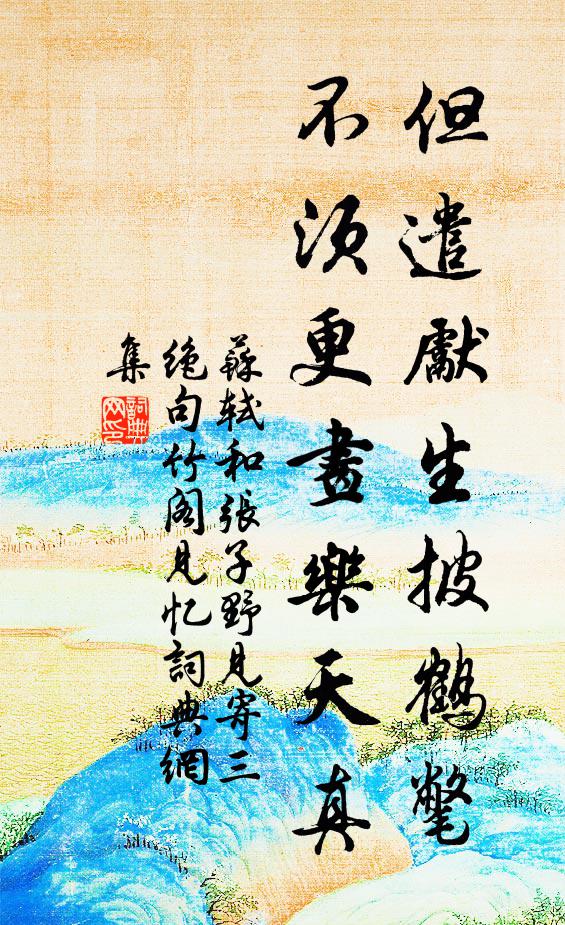 但遣獻生披鶴氅
不須更畫樂天真
蘇軾和張子野見寄三
絕句竹閣見忆詞典網
集
詞典
网印